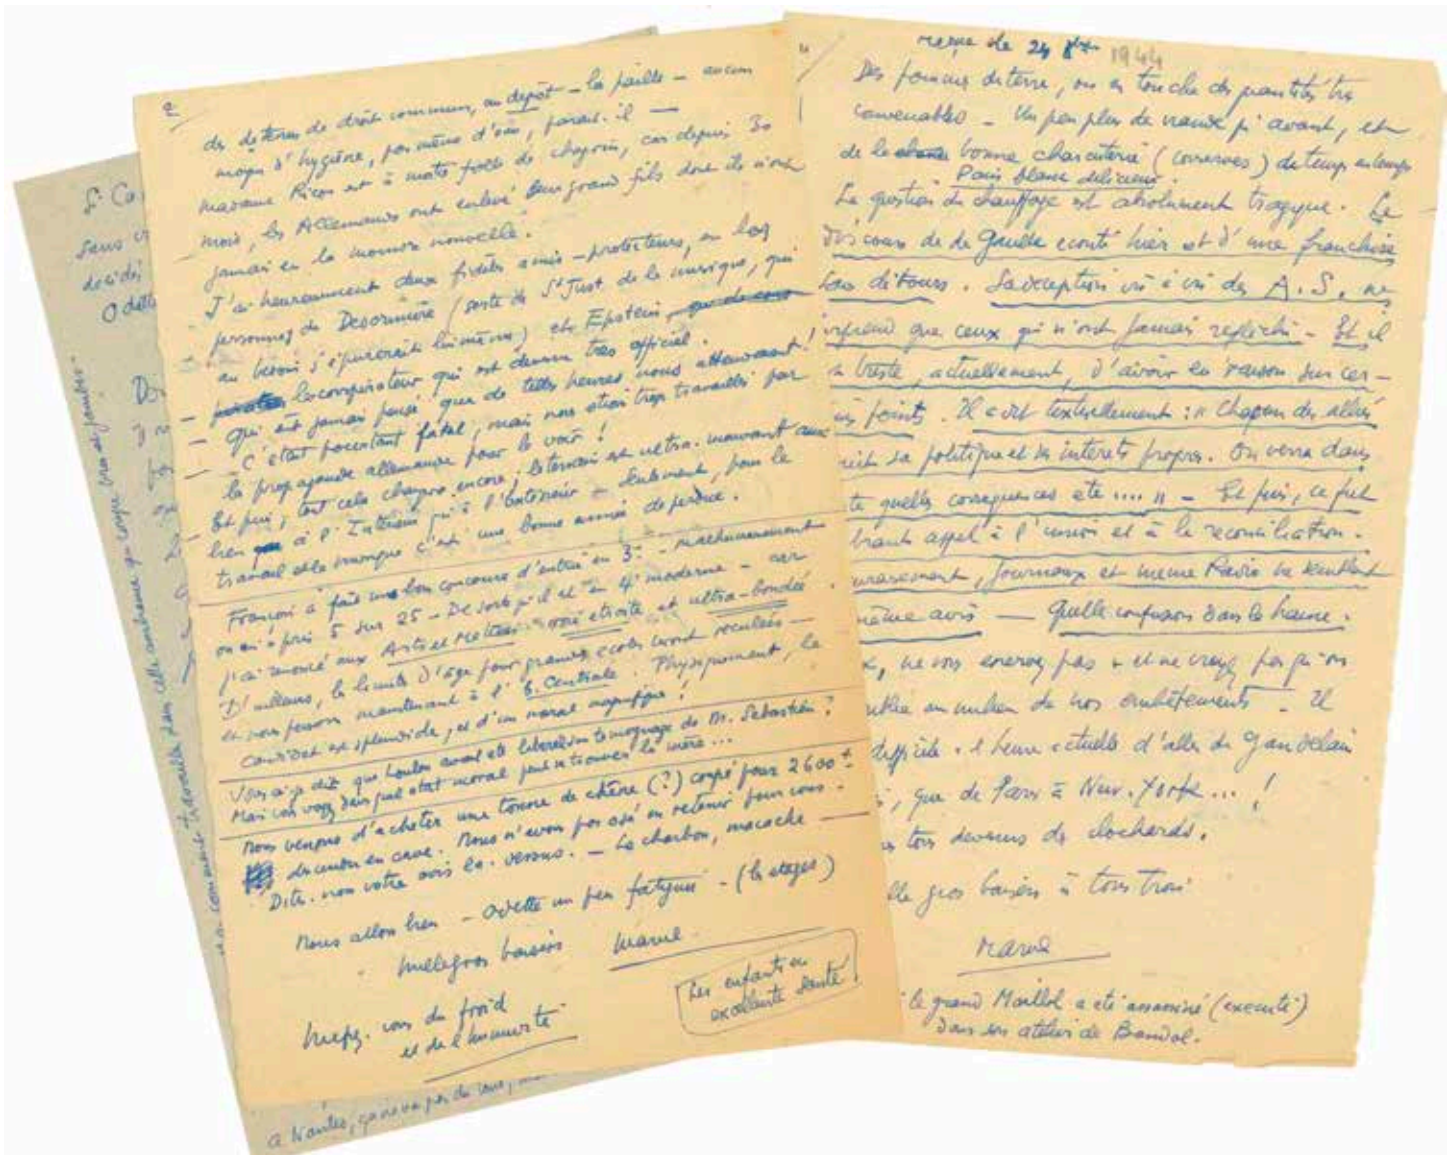 2
des détenus de droit commun, au dépôt – la paille – aucun
moyen d'hygiène, pas même d'eau, paraît-il —
Madame Ricou est à moitié folle de chagrin, car depuis 30
mois, les Allemands ont enlevé leur grand fils dont ils n'ont
jamais eu la moindre nouvelle.
J'ai heureusement deux fidèles amis-protecteurs, en les
personnes de Desormière (sorte de St Just de la musique, qui
au besoin s'épurerait lui même) et Epstein,
le conspirateur qui est devenu très officiel.
– Qui eut jamais pensé que de telles heures nous attendraient!
– C'était pourtant fatal, mais nous étions trop travaillés par
la propagande allemande pour le voir !
Et puis, tout cela changera encore; le terrain est ultra-mouvant aussi
bien à l'Intérieur qu'à l'Extérieur – Seulement, pour le
travail et la musique c'est une bonne année de perdue.
François a fait un bon concours d'entrée en 3e – malheureusement
on en a pris 5 sur 25 – De sorte qu'il est en 4e moderne – car
j'ai renoncé aux Arts et Métiers voie étroite et ultra-bondée.
D'ailleurs, la limite d'âge pour grandes écoles seront reculées —
et nous pensons maintenant à l'E. Centrale. Physiquement, le
candidat est splendide, et d'un moral magnifique !
Vous ai-je dit que avait été libéré sur témoignage de M. Sebastien ?
Mais on voyez dans quel état moral peut se trouver la mère...
Nous venons d'acheter une tonne de chêne (?) coupé pour 2600 f
descendu en cave. Nous n'avons pas osé en retenir pour vous –
Dites-nous votre avis là-dessus. – Le charbon, macache —
Nous allons bien – Odette un peu fatiguée – (les étages)
Mille gros baisers Marcel
Les enfants en
excellente santé !
Méfiez-vous du froid
et de l'humidité
reçue le 24 8bre 1944
Des pommes de terre, on en touche des quantités très
convenables – Un peu plus de viande qu'avant, et
de la bonne charcuterie (conserves) de temps en temps
Pain blanc délicieux.
La question du chauffage est absolument tragique. Le
discours de de Gaulle écouté hier est d'une franchise
sans détours. Sa déception vis à vis des A.S. ne
surprend que ceux qui n'ont jamais réfléchi – Et il
triste, actuellement, d'avoir eu raison sur cer-
points. Il a dit textuellement : « Chacun des alliés
sa politique et ses intérêts propres. On verra dans
quelles conséquences etc .... » – Et puis, ce fut
appel à l'union et à la réconciliation.
Journaux et même Radio ne semblent
même avis — Quelle confusion dans la haine.
, ne vous énervez pas – et ne croyez pas qu'on
au milieu de nos embêtements – Il
difficile à l'heure actuelle d'aller de Gandelain
, que de Paris à New-York ... !
tous devenus des clochards.
gros baisers à tous trois
Marcel
le grand Maillol a été assassiné (exécuté)
dans son atelier de Bandol.
St Ca
sans
décidé
Odette
A Nantes, ça ne va pas du tout,